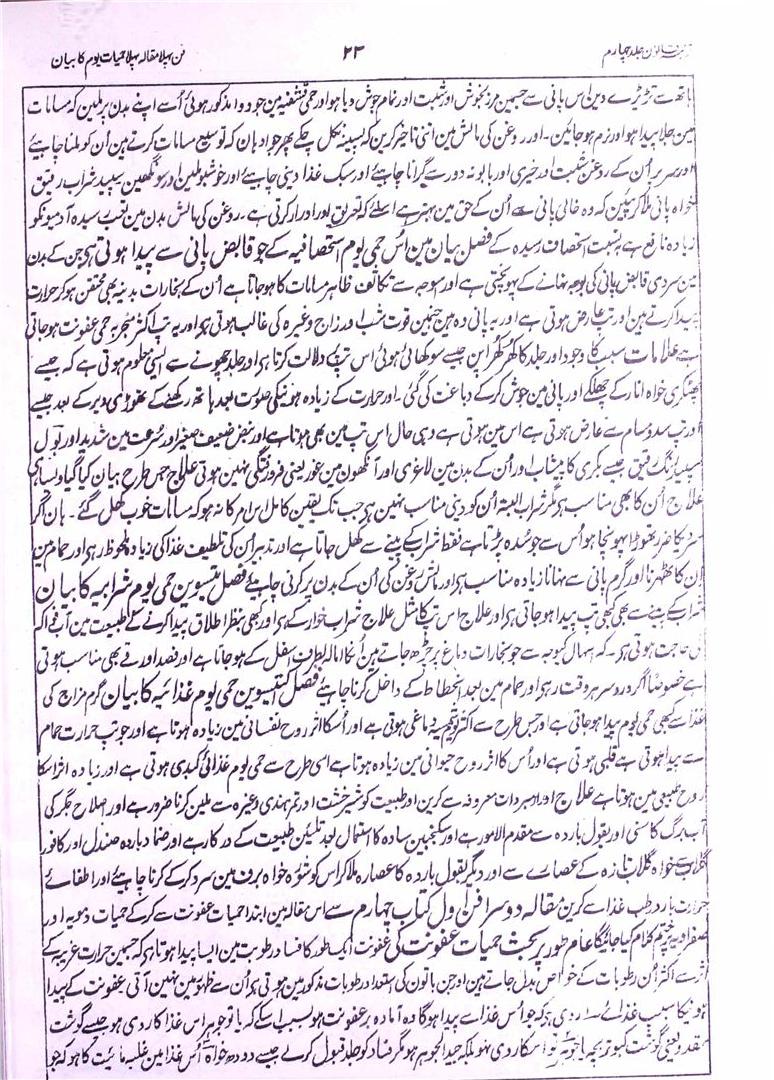 ترجمہ قانون جلد چہارم ۲۳ فن پہلا مقالہ پہلا حمیات یوم کا بیان
ہاتھ سے تڑیڑے دین اس پانی سے جسمین مرزنجوش اور شبت اور نمام جوش دیا ہو اور حمی قشفیہ مین جو دوا مذکور ہوئی اُسے اپنے بدن پر ملین کہ مسامات
مین جلا پیدا ہو اور نرم ہو جائین۔ اور روغن کی مالش مین اتنی تاخیر کرین کہ پسینہ نکل چکے پھر جو ادہان کہ توسیع مسامات کرتے ہین اُن کو ملنا چاہیئے
اور سر پر اُن کے روغن شبت اور خیری اور بابونہ دور سے گرانا چاہیئے اور سبک غذا دینی چاہیئے اور خوشبو ملین اور سونگھین سپید شراب رقیق
خواہ پانی ملا کر پئین کہ وہ خالی پانی سے اُن کے حق مین بہتر ہے اسلئے کہ تعریق اور ادرار کرتی ہے۔ روغن کی مالش بدن مین تعب رسیدہ آدمیونکو
زیادہ نافع ہے بہ نسبت استحصاف رسیدہ کے فصل بیان مین اُس حمی یوم استحصافیہ کے جو قابض پانی سے پیدا ہوتی ہی جن کے بدن
مین سردی قابض پانی کی بوجہ نہانے کے پہونچتی ہے اور اسوجہ سے تکاثف ظاہر مسامات کا ہو جاتا ہے اُن کے بخارات بدنیہ بھی محتقن ہو کر حرارت
پیدا کرتے ہین اور تپ عارض ہوتی ہے اور یہ پانی وہ ہین جنمین قوت شب اور زاج وغیرہ کی غالب ہوتی ہو اور یہ تپ اکثر منجر بہ حمی عفونت ہو جاتی
ہے علامات سبب کا وجود اور جلد کا کھُر کھُرا پن جیسے سوکھائی ہوئی اس تپ پر دلالت کرتا ہو اور جلد چھونے سے ایسی معلوم ہوتی ہے کہ جیسے
پھٹکری خواہ انار کے چھلکے اور پانی مین جوش کرکے دباغت کی گئی۔ اور حرارت کے زیادہ ہونیکی صورت بعد ہاتھ رکھنے کے تھوڑی دیر کے بعد جیسے
اور تپ سدہ مسام سے عارض ہوتی ہے اس مین ہوتی ہے وہی حال اس تپ مین بھی ہوتا ہے اور نبض ضعیف صغیر اور سرعت مین شدید اور بول
سپید رنگ رقیق جیسے بکری کا پیشاب اور اُن کے بدن مین لاغری اور آنکھون مین غور یعنی فرورفتگی نہین ہوتی علاج جس طرح بیان کیا گیا ویسا ہی
علاج اُن کا بھی مناسب ہو مگر شراب البتہ اُن کو دینی مناسب نہین ہی جب تک یقین کامل اس امر کا نہ ہو کہ مسامات خوب کھل گئے۔ ہان اگر
سردی کا ضرر تھوڑا پہونچا ہو اُس سے جو سُدہ پڑتا ہے فقط شراب کے پینے سے کھل جاتا ہے اور تدبیر اُن کی تلطیف غذا کی زیادہ ملحوظ رہی اور حمام مین
اُن کا ٹھہرنا اور گرم پانی سے نہانا زیادہ مناسب ہو اور مالش روغن کی اُن کے بدن پر کرنی چاہیئے فصل تیسوین حمی یوم شرابیہ کا بیان
شراب کے پینے سے بھی کبھی تپ پیدا ہو جاتی ہو اور علاج اس تپ کا مثل علاج شراب خوار کے ہو اور کبھی بنظر اطلاق پیدا کرنے کے طبیعت مین آب فواکہ
کی حاجت ہوتی ہو۔ کہ اسہال کیوجہ سے جو بخارات دماغ پر چڑھ جاتے ہین اُنکا امالہ بطرف اسفل کے ہو جاتا ہے اور فصد اور قے بھی مناسب ہوتی
ہے خصوصًا اگر دورہ سر ہر وقت رہی اور حمام مین بعد انحطاط کے داخل کرنا چاہیئے فصل اکتیسوین حمی یوم غذائیہ کا بیان گرم مزاج کی
غذا سے کبھی حمی یوم پیدا ہو جاتی ہے اور جس طرح سے اکثر شمسیہ دماغی ہوتی ہے اور اُسکا اثر روح نفسانی مین زیادہ ہوتا ہے اور جو تپ حرارت حمام
سے پیدا ہوتی ہے قلبی ہوتی ہے اور اُس کا اثر روح حیوانی مین زیادہ ہوتا ہے اسی طرح سے حمی یوم غذائی کبدی ہوتی ہے اور زیادہ اثر اسکا
روح طبیعی مین ہوتا ہے علاج اور ادمبردات معروفہ سے کرین اور طبیعت کو شیر خشت اور تمر ہندی وغیرہ سے ملین کرنا ضرور ہے اور اصلاح جگر کی
آب برگ کاسنی اور بقول باردہ سے مقدم الامور ہے اور سکنجبین سادہ کا استعمال بعد تلئین طبیعت کے درکار ہے اور ضماد باردہ صندل اور کافور
گلاب سے خواہ گلاب تازہ کے عصارے سے اور دیگر بقول باردہ کا عصارہ ملا کر اس کو شورہ خواہ برف مین سرد کرکے کرنا چاہیئے اور اطفائے
حرارت بارد رطب غذا سے کرین مقالہ دوسرا فن اول کتاب چہارم سے اس مقالہ مین ابتدا حمیات عفونت سے کرکے حمیات دمویہ اور
صفراویہ پر ختم کلام کیا جائیگا عام طور پر بحث حمیات عفونت کی عفونت ایک طور کا فساد رطوبت مین ایسا پیدا ہوتا ہو کہ جسمین حرارت غریبہ کے
اثر سے اکثر اُن رطوبات کے خواص بدل جاتے ہین اور جن باتون کی استعداد رطوبات مذکور مین ہوتی ہو اُن سے ظہور مین نہین آتی عفونت کے پیدا
ہونیکا سبب غذائے ردی ہو کہ جو اُس غذا سے پیدا ہوگا وہ آمادہ بر عفونت ہو بسبب اسکے کہ یا تو جوہر اس غذا کا ردی ہو جیسے گوشت
مقدد یعنی گوشت کبوتر بچہ یا جوہر تو اسکا ردی نہو بلکہ جید الجوہر ہو مگر فساد کو جلد قبول کرلے جیسے دودھ خواہ اُس غذا مین غلبہ مائیت کا ہو کہ جو